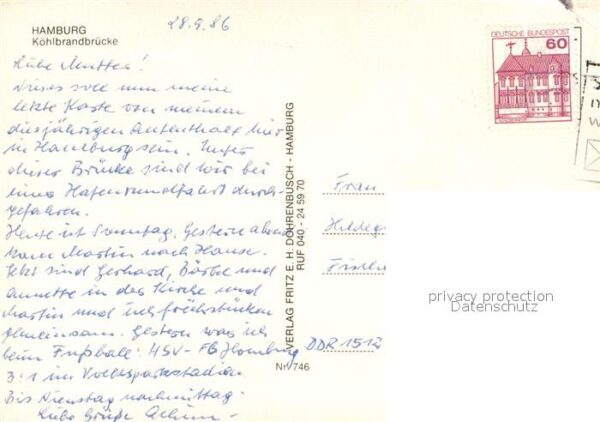 HAMBURG
Köhlbrandbrücke
28.9.86
DEUTSCHE BUNDESPOST
60
Liebe Mutter!
Dieses soll nun meine
letzte Karte von meinem
diesjährigen Aufenthalt hier
in Hamburg sein. Unter
dieser Brücke sind wir bei
einer Hafenrundfahrt durch-
gefahren.
Heute ist Sonntag. Gestern abend
kam Martin nach Hause.
Jetzt sind Gerhard, Bärbel und
Annette in der Kirche und
Martin und ich frühstücken
gemeinsam. Gestern war ich
beim Fußball: HSV - FC Homburg
3:1 im Volksparkstadion
Bis Dienstag nachmittag.
Liebe Grüße
VERLAG FRITZ E. H. DÖHRENBUSCH - HAMBURG
RUF 040 - 24 59 70
Nr. 746
Frau
Hildeg
Fischer
DDR 1512
privacy protection
Datenschutz